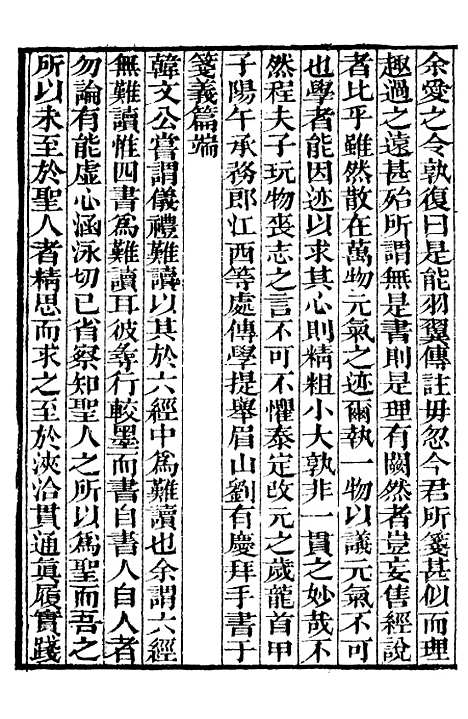 余愛之今孰復曰是能羽翼傳註毋忽今君所箋甚似而理
趣過之遠甚殆所謂無是書則是理有闕然者豈妄售經說
者比乎雖然散在萬物元氣之迹爾執一物以議元氣不可
也學者能因迹以求其心則精粗小大孰非一貫之妙哉不
然程夫子玩物喪志之言不可不懼泰定改元之歲龍首甲
子陽午承務郎江西等處儒學提舉眉山劉有慶拜手書于
箋義篇端
韓文公嘗謂儀禮難讀以其於六經中為難讀也余謂六經
無難讀惟四書為難讀耳彼尋行較墨而書自書人自人者
勿論有能虛心涵泳切己省察知聖人之所以為聖而吾之
所以未至於聖人者精思而求之至於浹洽貫通眞履實踐